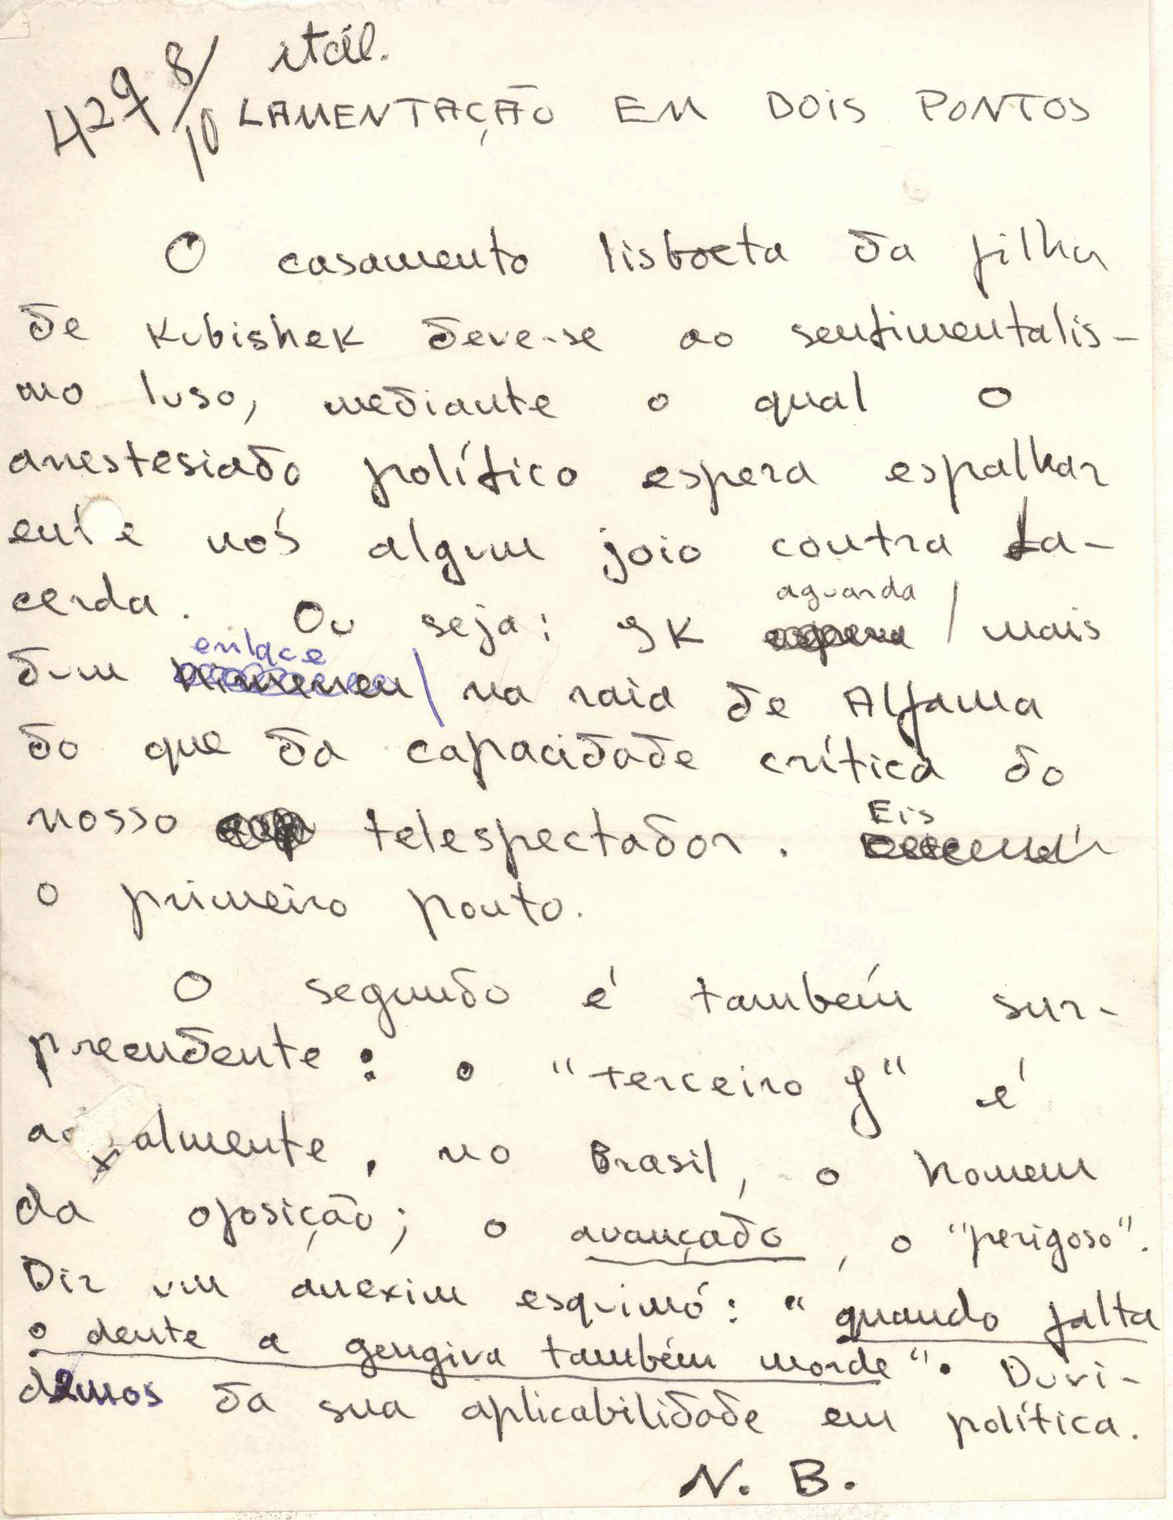 4298/10 itál.
LAMENTAÇÃO EM DOIS PONTOS
O casamento lisboeta da filha
de Kubishek deve-se ao sentimentalis-
mo luso, mediante o qual o
anestesiado político espera espalhar
ent e nós algum joio contra La-
cerda. Ou seja: JK aguarda / mais
dum enlace / na raia de Alfama
do que da capacidade crítica do
nosso telespectador. Eis
o primeiro ponto.
O segundo é também sur-
preendente: o "terceiro J" é
a almente, no Brasil, o homem
da oposição; o avançado, o "perigoso".
Diz um anexim esquimó: "quando falta
o dente a gengiva também morde". Duvi-
damos da sua aplicabilidade em política.
N. B.